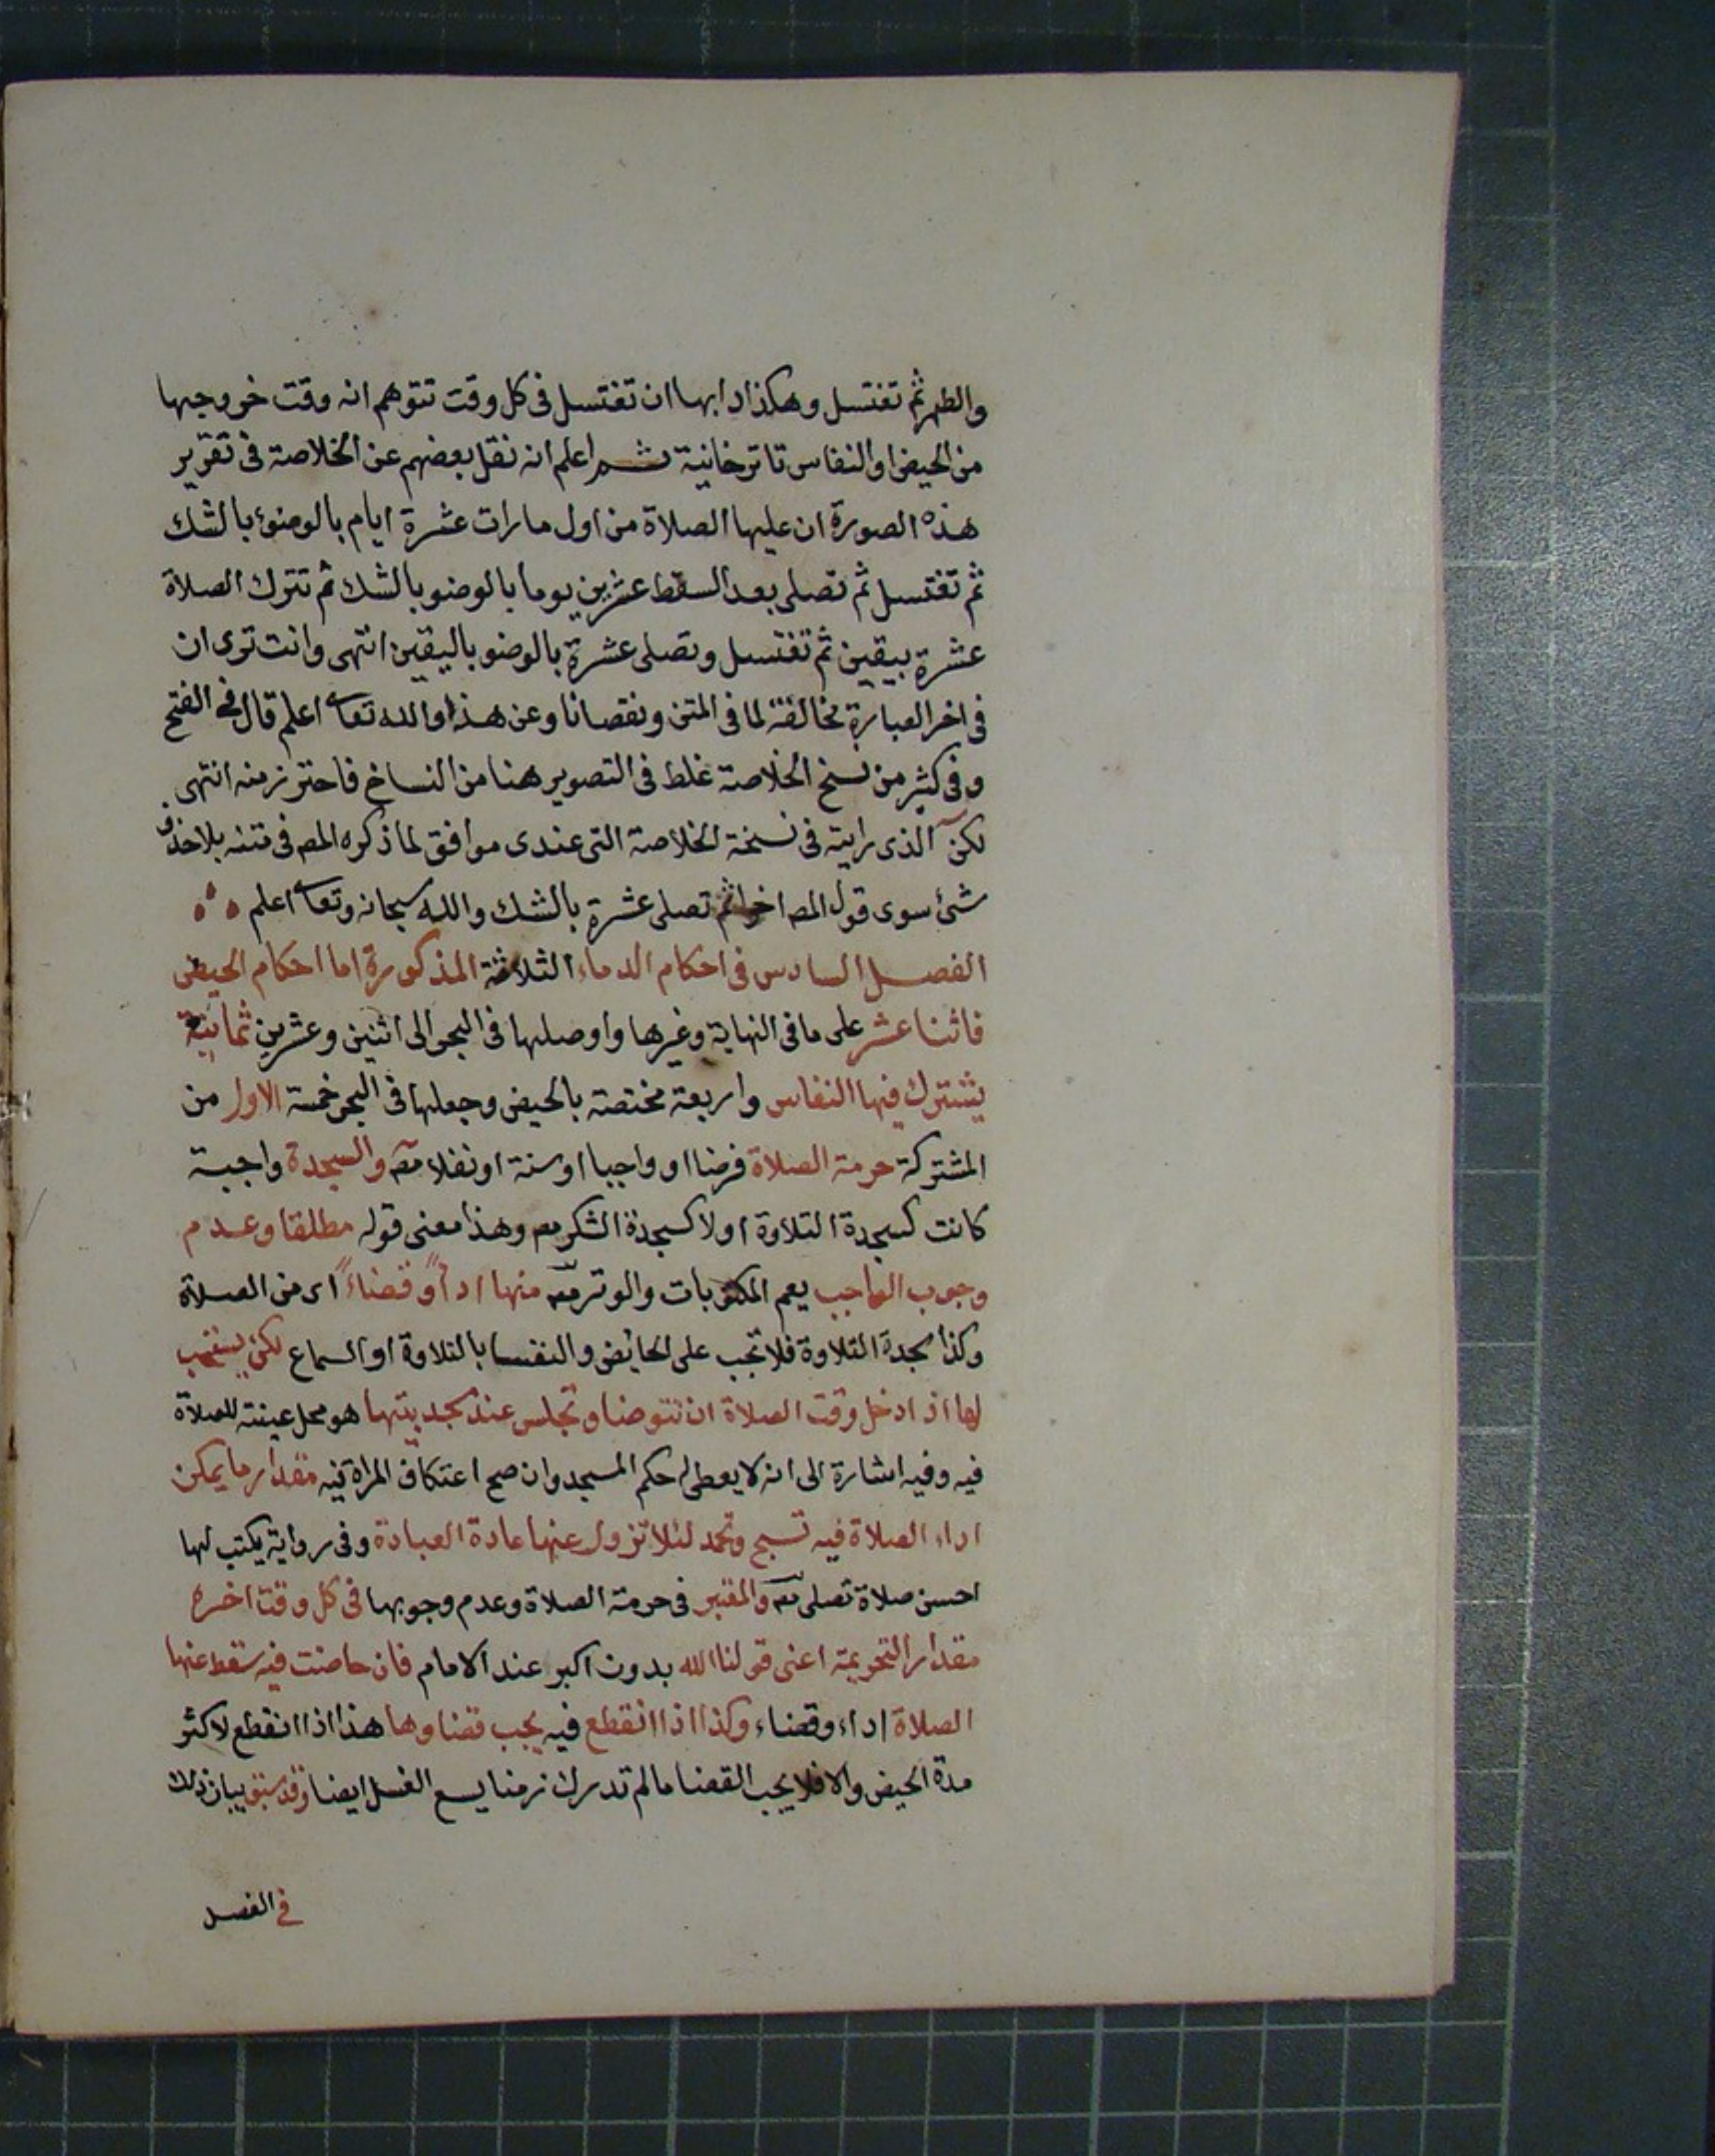 والطهر ثم تغتسل وهكذا دابها ان تغتسل فى كل وقت تتوهم انه وقت خروجها
من الحيض او النفاس تاترخانية ثم اعلم انه نقل بعضهم عن الخلاصة فى تقرير
هذه الصورة ان عليها الصلاة من اول ما رات عشرة ايام بالوضوء بالشك
ثم تغتسل ثم تصلى بعد السقط عشرين يوما بالوضو بالشك ثم تترك الصلاة
عشرة بيقين ثم تغتسل وتصلى عشرة بالوضو باليقين انتهى وانت ترى ان
فى اخر العبارة مخالفة لما فى المتن ونقصانا وعن هذا والله تعا اعلم قال فى الفتح
وفى كثير من نسخ الخلاصة غلط فى التصوير هنا من النساخ فاحترز منه انتهى
لكن الذى رايته فى نسخة الخلاصة التى عندى موافق لما ذكره المص فى متنه بلا حذف
شئ سوى قول المص اخرا ثم تصلى عشرة بالشك والله سبحانه وتعا اعلم
الفصل السادس فى احكام الدماء الثلاثة المذكورة اما احكام الحيض
فاثنا عشر على ما فى النهاية وغيرها واوصلها فى البحر الى اثنين وعشرين ثمانية
يشترك فيها النفاس واربعة مختصة بالحيض وجعلها فى البحر خمسة الاول من
المشتركة حرمة الصلاة فرضا او واجبا او سنة او نفلا مص والسجدة واجبة
كانت كسجدة التلاوة اولا كسجدة الشكر مص وهذا معنى قوله مطلقا وعدم
وجوب الواجب يعم المكتوبات والوتر مص منها اداً وقضاءً اى من الصلاة
وكذا سجدة التلاوة فلا تجب على الحائض والنفسا بالتلاوة او السماع لكن يستحب
لها اذا دخل وقت الصلاة ان تتوضا وتجلس عند مسجد بيتها هو محل عينته للصلاة
فيه وفيه اشارة الى انه لا يعطى له حكم المسجد وان صح اعتكاف المراة فيه مقدار ما يمكن
اداء الصلاة فيه تسبح وتحمد لئلا تزول عنها عادة العبادة وفى رواية يكتب لها
احسن صلاة تصلى مص والمعتبر فى حرمة الصلاة وعدم وجوبها فى كل وقت اخره
مقدار التحريمة اعنى قولنا الله بدون اكبر عند الامام فان حاضت فيه سقط عنها
الصلاة اداء وقضاء وكذا اذا انقطع فيه يجب قضاوها هذا اذا انقطع لاكثر
مدة الحيض والا فلا يجب القضا ما لم تدرك زمنا يسع الغسل ايضا وقد سبق بيان ذلك
فى الفصل